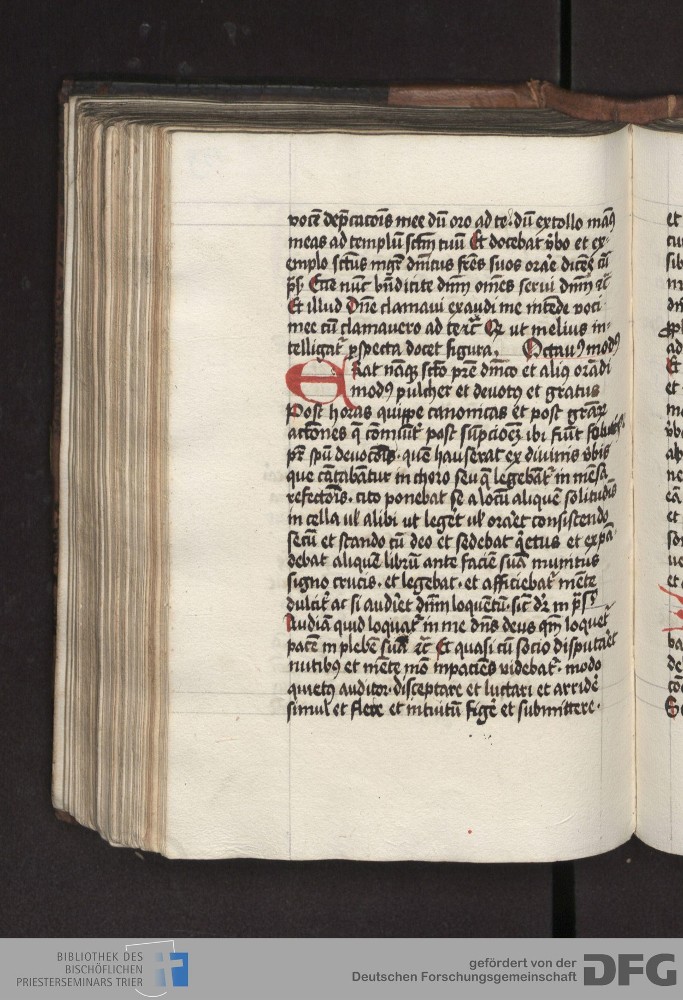 vocē dep̄catōis mee dū oro ad te. dū extollo man9
meas ad templū sctm̄ tuū Et docebat v̄bo et ex-
emplo sctūs mgr̄ dnīcus frēs suos orar̄e dicēs cū
ps̄ Ecce nunc bn̄dicite dnm̄ omēs servi dnī etc̄
Et illud Dn̄e clamavi exaudi me intēde voci
mee cū clamavero ad te etc̄ Qr̄ ut melius in-
telligat̄ p̄specta docet figura. Octav9 mod9
Erat nāq3 scto pr̄e dnīco et ali9 orādi
mod9 pulcher et devot9 et gratus
Post horas quippe canonicas et post grār3
actōnes q̄ cōmūit̄ post sūpcioēz cibi fiūt
pr̄ spū devocōis. quē hauserat ex divinis v̄bis
que cātabāntur in choro seu q̄ legebāt̄ in mēsa
refectōis. cito ponebat se ī locū aliquē solitudīs
in cella ul̄ alibi ut leger̄t ul̄ orar̄et consistendo
secū et stando cū deo et sedebat q̄etus et expā-
debat aliquē librū ante faciē suā munitus
signo crucis. et legebat. et afficiebat̄ mēte
dulcit̄ ac si audir̄et dnm̄ loquentū. sic̄ dr̄ in ps̄
Audiā quid loquat̄ in me dn̄s deus qm̄ loquet̄
pacē in plebē suā etc̄ Et quasi cū socio disputar̄et
nutib9 et mēte mō inpaciēs videbat̄. modo
quiet9 auditor. disceptare et luctari et arridē
simul et flere et intuitū figē et submittere.
BIBLIOTHEK DES
BISCHÖFLICHEN
PRIESTERSEMINARS TRIER
gefördert von der
Deutschen Forschungsgemeinschaft
DFG